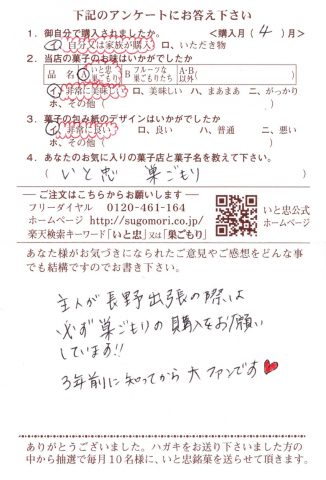 下記のアンケートにお答え下さい
1. 御自分で購入されましたか。 <購入月( 4 )月>
イ. 自分又は家族が購入 ロ. いただき物
2. 当店の菓子のお味はいかがでしたか
品名 A いと忠巣ごもり B フルーツな巣ごもりたち A・B以外( )
イ. 非常に美味しい ロ. 美味しい ハ. まあまあ ニ. がっかり
ホ. その他( )
3. 菓子の包み紙のデザインはいかがでしたか
イ. 非常に良い ロ. 良い ハ. 普通 ニ. 悪い
ホ. その他( )
4. あなたのお気に入りの菓子店と菓子名を教えて下さい。
( いと忠 巣ごもり )
ご注文はこちらからお願いします
フリーダイヤル 0120-461-164
ホームページ http://sugomori.co.jp/
楽天検索キーワード「いと忠」又は「巣ごもり」
いと忠公式
ホームページ
あなた様がお気づきになられたご意見やご感想をどんな事
でも結構ですのでお書き下さい。
主人が長野出張の際は
必ず巣ごもりの購入をお願い
しています!!
3年前に知ってから大ファンです
ありがとうございました。ハガキをお送り下さいました方の
中から抽選で毎月10名様に、いと忠銘菓を送らせて頂きます。